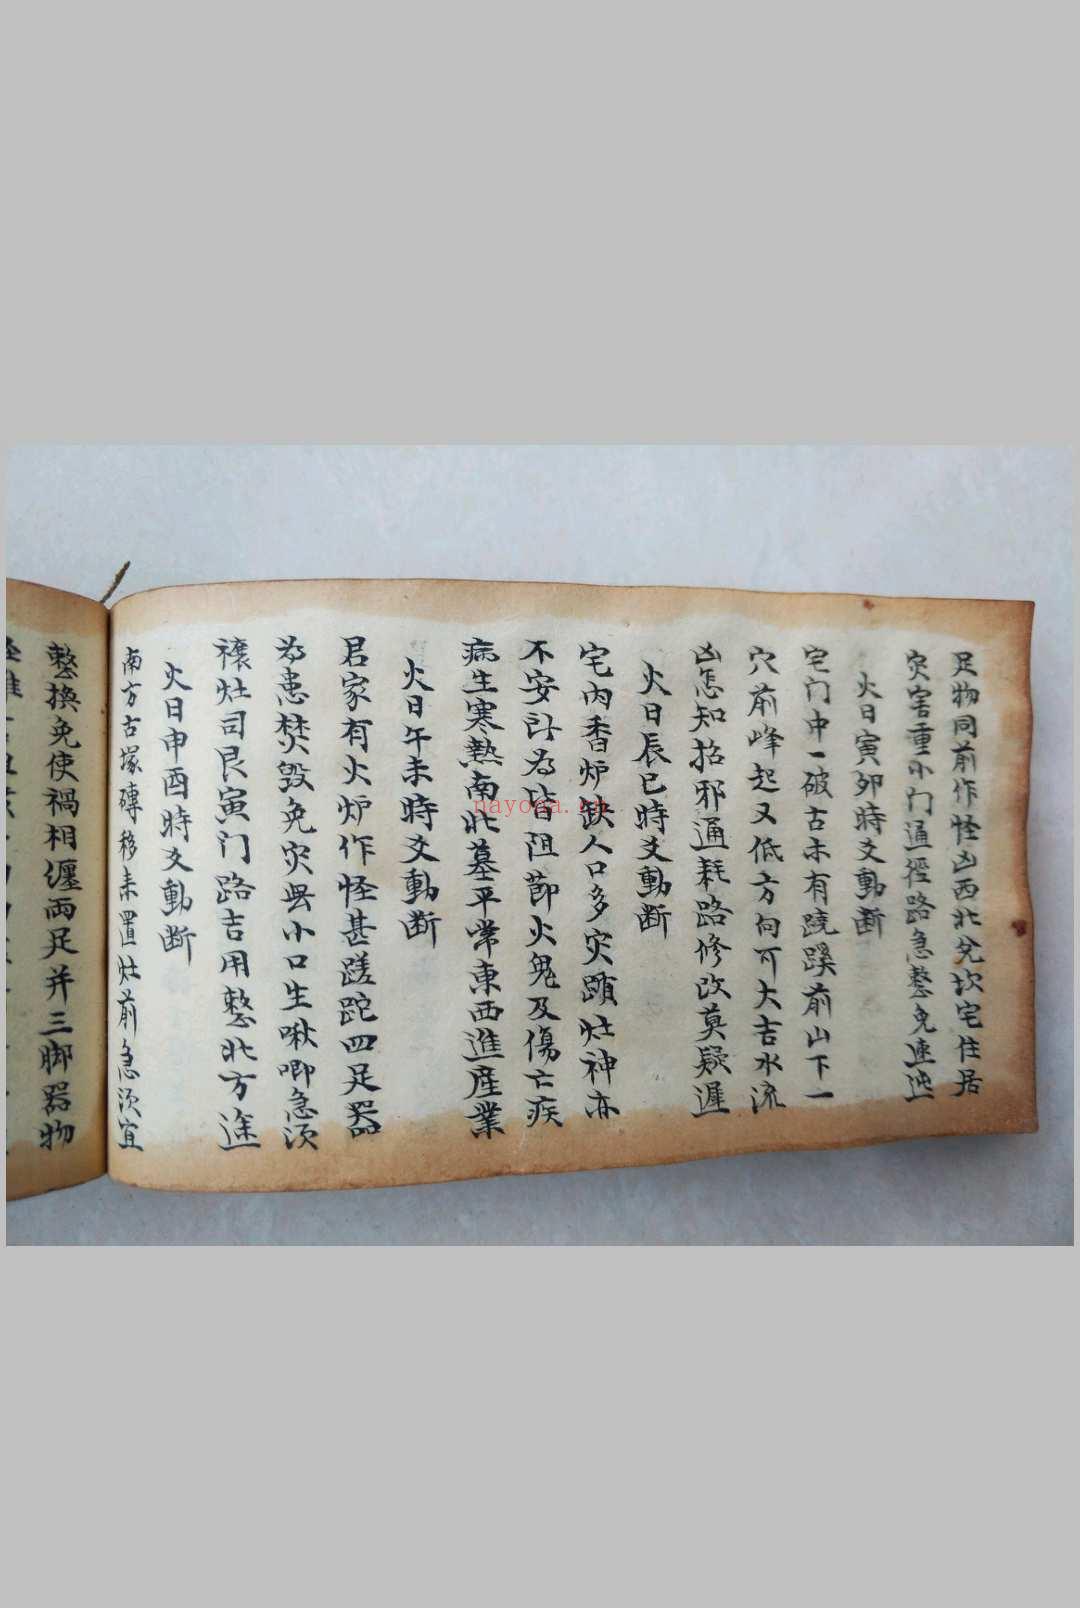 足物同前作怪凶西北兌坎宅住居
灾害重小门通徑路急整免迍
火日寅卯時爻動断
宅门中一破古木有蹺蹊前山下一
穴前峰起又低方向可大吉水流
凶怎知招邪通耗路修改莫疑遲
火日辰巳時爻動断
宅内香炉缺人口多灾蹎灶神亦
不安計為皆阻節火鬼及傷亡疾
病生寒熱南北墓平常東西進產業
火日午未時爻動断
君家有火炉作怪甚蹉跎四足器
為患焚毁免灾𠰥小口生啾唧急須
禳灶司艮寅门路吉用整北方途
火日申酉時爻動断
南方古塚磚移来置灶前急須宜
整換免使禍相纏両足并三脚器物
nayona.cn